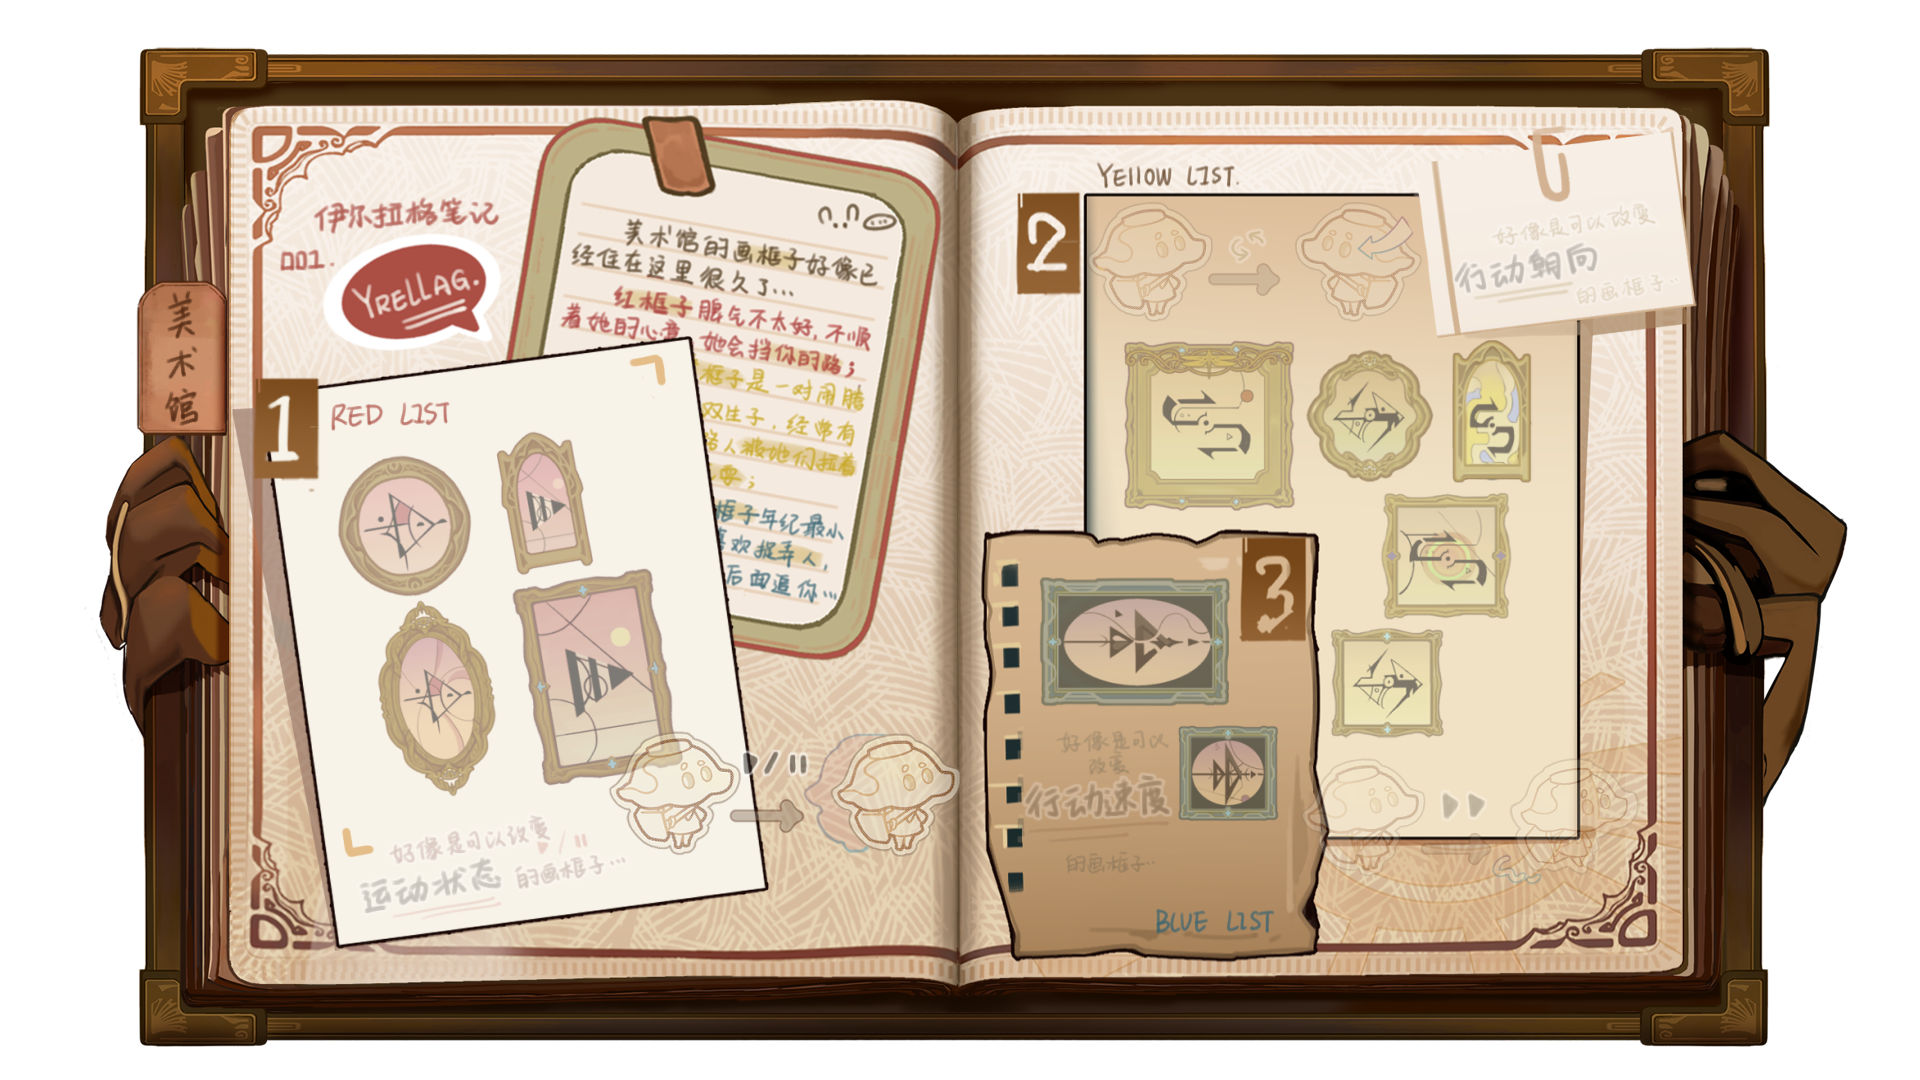 伊尔拉格笔记
001.
YRELLAG.
美术馆
美术馆的画框子好像已
经住在这里很久了...
红框子脾气不太好,不顺
着她的心意 她会挡你的路;
框子是一对闹腾
双生子,经常有
路人被她们拉着
框子年纪最小
喜欢捉弄人,
后面追你...
1
RED LIST
好像是可以改变
运动状态 的画框子...
2
YEllOW LIST.
好像是可以改变
行动朝向
的画框子...
3
好像是可以
改变
行动速度
的画框子...
BLUE LIST